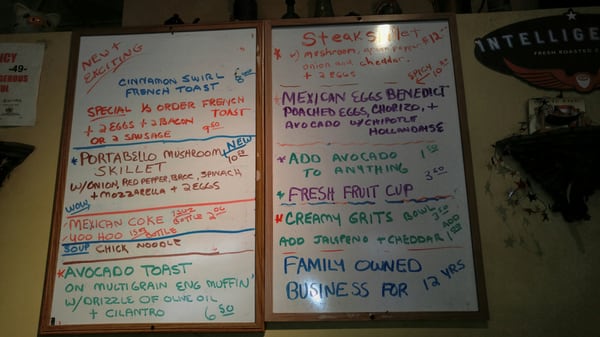 NEW +
EXCITING
CINNAMON SWIRL
FRENCH TOAST
SPECIAL ½ ORDER FRENCH TOAST
+ 2 EGGS + 2 BACON
OR 2 SAUSAGE 9.50
*PORTABELLO MUSHROOM NEW
SKILLET 10.50
W/ONION, RED PEPPER, BROC, SPINACH
+ MOZZARELLA + 2 EGGS
WOW
MEXICAN COKE BOTTLE 2.00
YOO HOO BOTTLE
SOUP CHICK NOODLE
*AVOCADO TOAST
ON MULTIGRAIN ENG MUFFIN
W/DRIZZLE OF OLIVE OIL
+ CILANTRO 6.50
Steak Skillet
W/ mushroom, green pepper, $12
onion and cheddar
+ 2 EGGS
SPICY
MEXICAN EGGS BENEDICT
POACHED EGGS, CHORIZO, +
AVOCADO W/CHIPOTLE
HOLLANDAISE
*ADD AVOCADO 1.50
TO ANYTHING
*FRESH FRUIT CUP 3.50
*CREAMY GRITS BOWL 3.50
ADD JALAPEÑO + CHEDDAR ADD
FAMILY OWNED
BUSINESS FOR 12 YRS
INTELLIGE
FRESH ROASTED
-49-